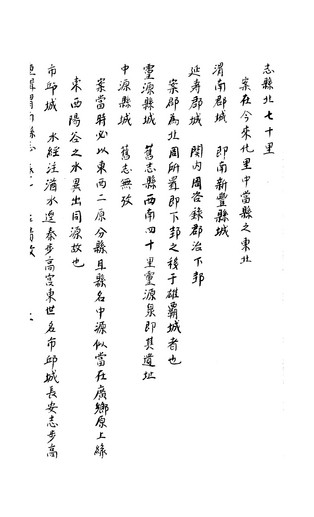 志縣北七十里
案在今來化里中當縣之東北
渭南郡城 即南新豐縣城
延壽郡城 關內周咨錄郡治下邽
案郡為北周所置即下邽之後于雄霸城者也
靈源縣城 舊志縣西南四十里靈源泉即其遺址
中源縣城 舊志無攷
案當時必以東西二原分縣且縣名中源似當在廣鄉原上緣
東西陽谷之水異出同源故也
市邱城 水經注渭水逕秦步高宮東世名市邱城長安志步高